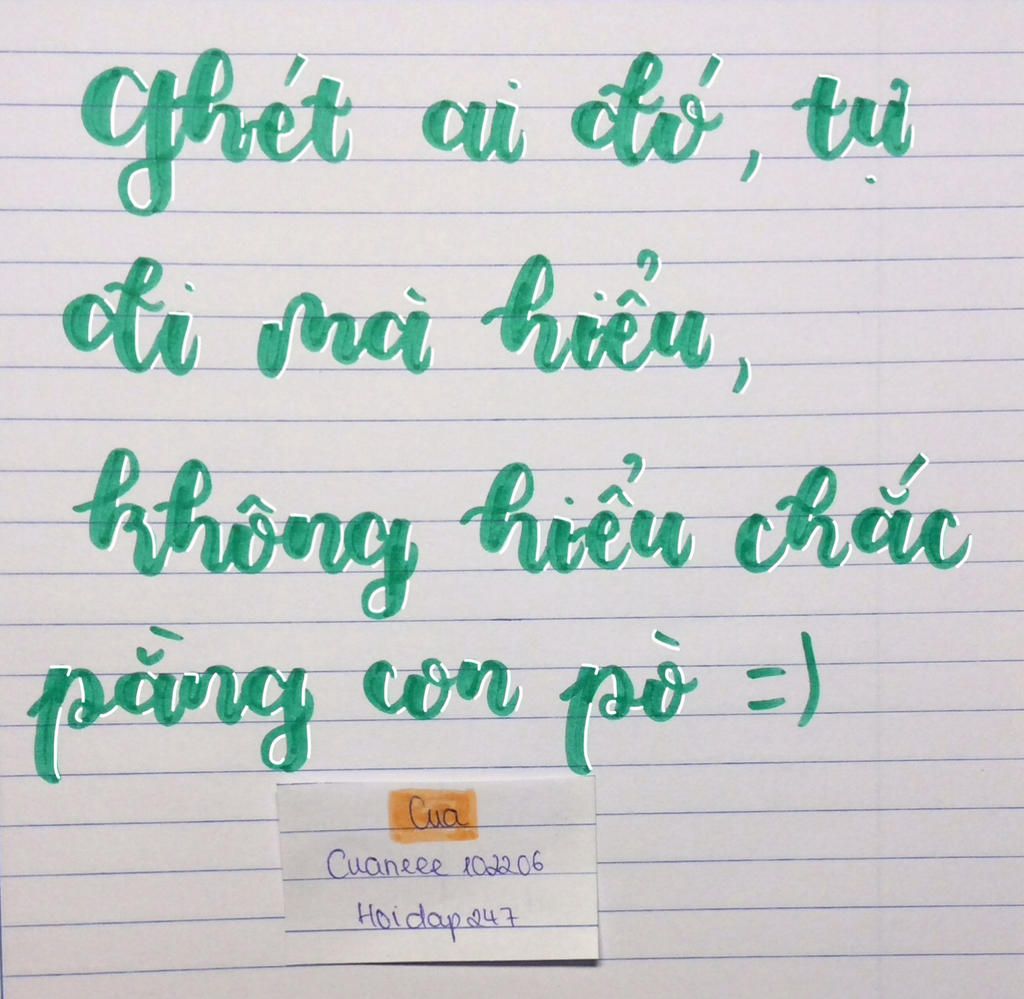 Ghét ai đó, tự
đi mà hiểu,
không hiểu chắc
pằng con pò =)
Cua
Cuaneee 102206
Hoidap247